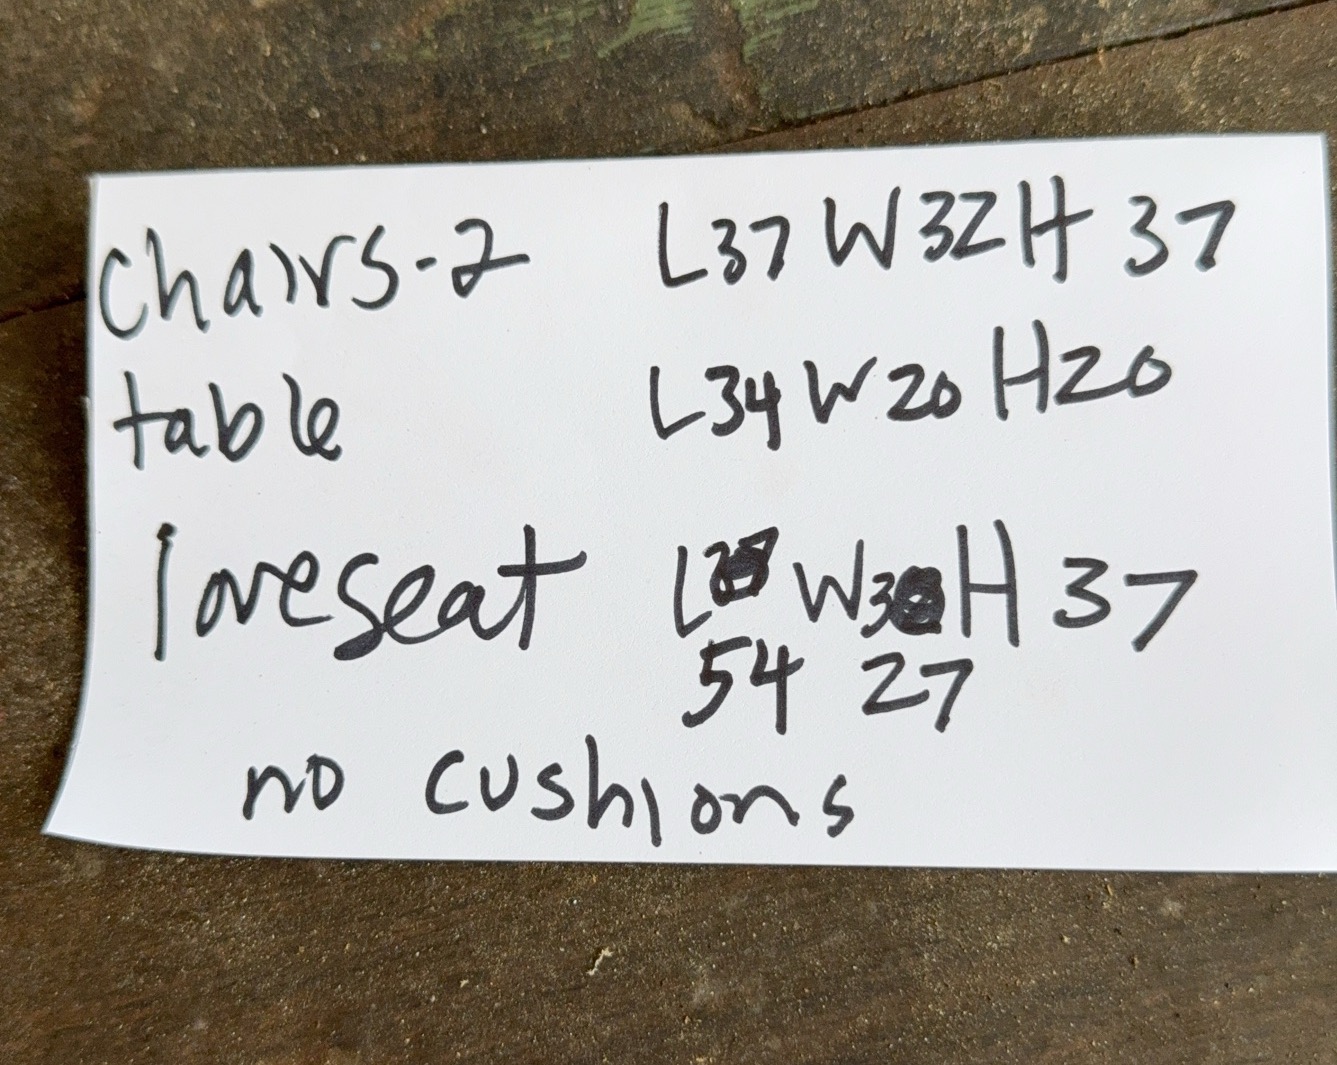 chairs-2 L37 W32 H 37
table L34 W 20 H20
loveseat L W3 H 37
54 27
no cushions